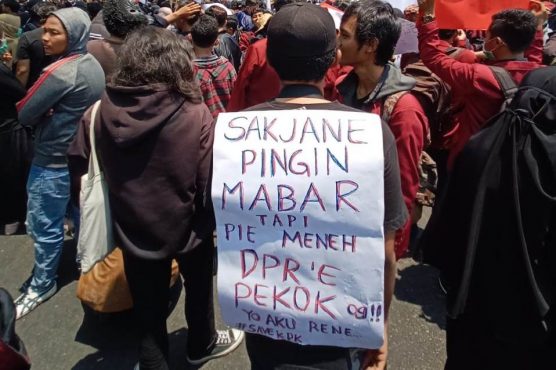 SAKJANE
PINGIN
MABAR
TAPI
PIE MENEH
DPR'E
PEKOK OG!!
YO AKU RENE...
#SAVEKPK